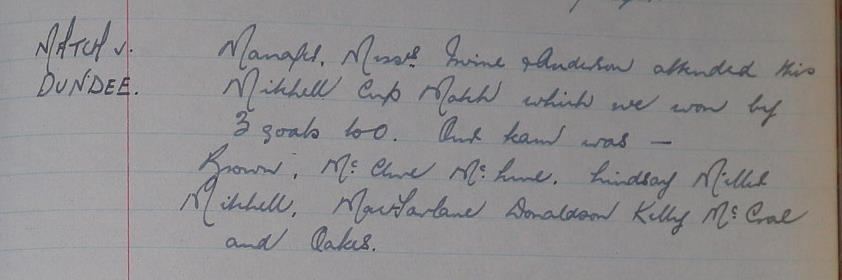 MATCH v. Manager, Messrs Irvine & Anderson attended this
DUNDEE. Mitchell Cup Match which we won by
3 goals to 0. Our team was —
Brown, McClure McLure. Lindsay Miller
Mitchell, MacFarlane Donaldson Kelly McCrae
and Oakes.